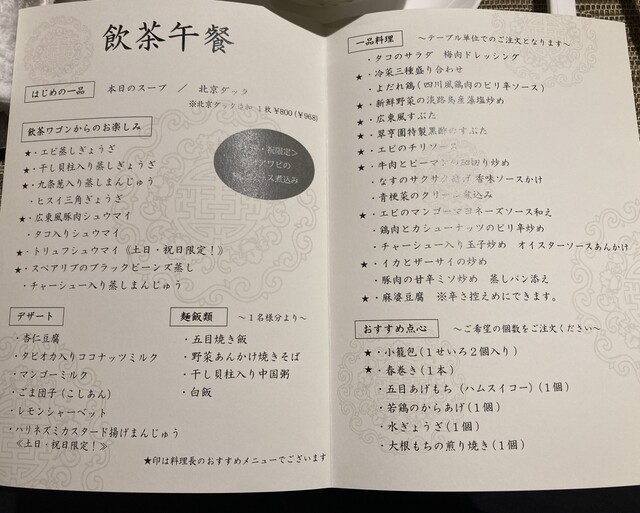 飲茶午餐
はじめの一品
本日のスープ ／ 北京ダック
※北京ダック 1枚¥800(¥968)
飲茶ワゴンからのお楽しみ
★・エビ蒸しぎょうざ
★・干し貝柱入り蒸しぎょうざ
★・九条葱入り蒸しまんじゅう
・ヒスイ三角ぎょうざ
★・広東風豚肉シュウマイ
・タコ入りシュウマイ
★・トリュフシュウマイ《土日・祝日限定！》
★・スペアリブのブラックビーンズ蒸し
・チャーシュー入り蒸しまんじゅう
・祝限定＞
アワビの
煮込み
デザート
・杏仁豆腐
・タピオカ入りココナッツミルク
・マンゴーミルク
・ごま団子(こしあん)
・レモンシャーベット
・ハリネズミカスタード揚げまんじゅう
《土日・祝日限定！》
麺飯類 ～１名様分より～
・五目焼き飯
・野菜あんかけ焼きそば
・干し貝柱入り中国粥
・白飯
★印は料理長のおすすめメニューでございます
一品料理 ～テーブル単位でのご注文となります～
・タコのサラダ 梅肉ドレッシング
★・冷菜三種盛り合わせ
・よだれ鶏(四川風鶏肉のピリ辛ソース)
★・新鮮野菜の淡路島産藻塩炒め
★・広東風すぶた
★・翠亨園特製黒酢のすぶた
★・エビのチリソース
★・牛肉とピーマンの細切り炒め
・なすのサクサク揚げ 香味ソースかけ
・青梗菜のクリーム煮込み
★・エビのマンゴーマヨネーズソース和え
・鶏肉とカシューナッツのピリ辛炒め
・チャーシュー入り玉子炒め オイスターソースあんかけ
★・イカとザーサイの炒め
・豚肉の甘辛ミソ炒め 蒸しパン添え
★・麻婆豆腐 ※辛さ控えめにできます。
おすすめ点心 ～ご希望の個数をご注文ください～
★・小籠包(１せいろ２個入り)
★・春巻き(１本)
・五目あげもち (ハムスイコー)(１個)
・若鶏のからあげ(１個)
・水ぎょうざ(１個)
・大根もちの煎り焼き(１個)